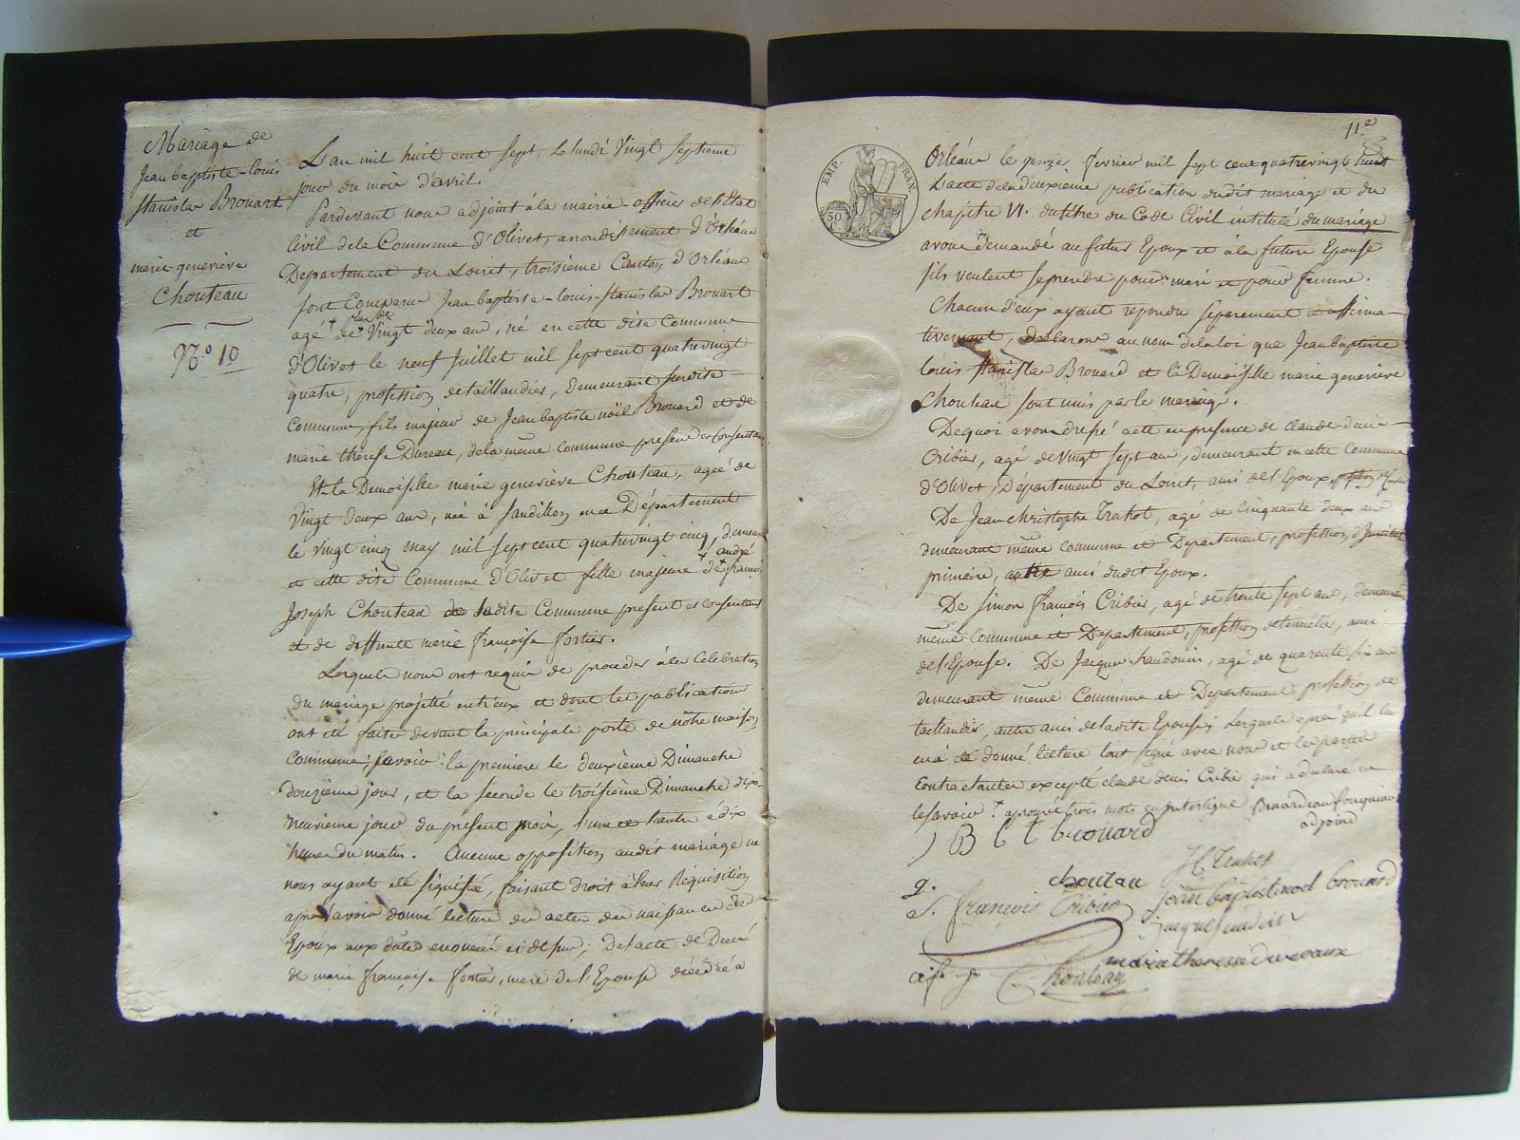 Mariage de
Jean baptiste-louis
stanislas Brouart
et
marie-geneviève
Chouteau
N.º 10
L'an mil huit cent sept, le lundi Vingt septieme
jour du mois d'avril.
Pardevant nous adjoint à la mairie officier de l'Etat
Civil de la Commune d'Olivet, arondissement d'Orléans
Departement du Loiret, troisieme Canton d'Orléans
sont Comparus Jean baptiste-louis-stanislas Brouart
agé de Vingt deux ans, né en cette dite Commune
d'Olivet le neuf Juillet mil sept cent quatrevingt
quatre, profession de taillandier, demeurant susdite
Commune, fils majeur de Jean baptiste noël Brouard et de
marie thérese Dureau, de la même commune present et Consentans
Et la Demoiselle marie geneviève Chouteau, agée de
Vingt deux ans, née à sandillon même Département
le vingt cinq may mil sept cent quatrevingt cinq, demeurant
et cette dite Commune d'Olivet fille majeure de françois andré
Joseph Chouteau de ladite Commune present et consentant
et de deffunte marie françoise fortier.
Lesquels nous ont requis de proceder à la Celebration
du mariage projetté entr'eux et dont les publications
ont été faites devant la principale porte de nôtre maison
Commune; savoir: la premiere le deuxième Dimanche
douzième jour, et la seconde le troisième Dimanche dix-
neuvieme jour du présent mois, l'une et l'autre à dix
heures du matin. Aucune opposition audit mariage ne
nous ayant été signifié, faisant droit à leur Réquisition
après avoir donné lecture des actes de naissances des
Epoux aux dates enoncés ci dessus; de l'acte de Décès
de marie françoise fortier, mere de l'Epouse décédée à
11.e
EMP. FRAN.
50 C
Orléans le fevrier mil sept cent quatrevingt huit
L'acte de la deuxième publication dudit mariage et du
chapitre VI. du titre du Code Civil intitulé du mariage
avons demandé au futur Epoux et à la future Epouse
s'ils veulent se prendre pour mari et pour femme.
Chacun d'eux ayant repondu separement et affirma-
tivement, déclarons au nom de la loi que Jean baptiste
louis stanislas Brouard et la Demoiselle marie geneviève
Chouteau sont unis par le mariage.
De quoi avons dressé acte en presence de claude denis
Cribier, agé de Vingt sept ans, demeurant en cette Commune
d'Olivet, Departement du Loiret, ami de l'Epoux
De Jean Christophe Trahot, agé de Cinquante deux ans
demeurant même commune et Departement, profession d'
primaire, autre ami dudit Epoux.
De Simon françois Cribier, agé de trente sept ans, demeurant
même Commune et Departement, profession de tonnelier, ami
de l'Epouse. De Jacques, agé de quarente six ans
demeurant même Commune et Departement, profession de
taillandier, autre ami de ladite Epouse; Lesquels après qu'il leur
en a été donné lecture l'ont signé avec nous et les parties
Contractantes excepté claude denis Cribier qui a declaré ne
le savoir. approuvé trois mots en interligne
adjoint
J B L S brouard
J C Trahot
chouteau
S. françois Cribier
jean baptiste noel brouard
marie theresse
Chouteau